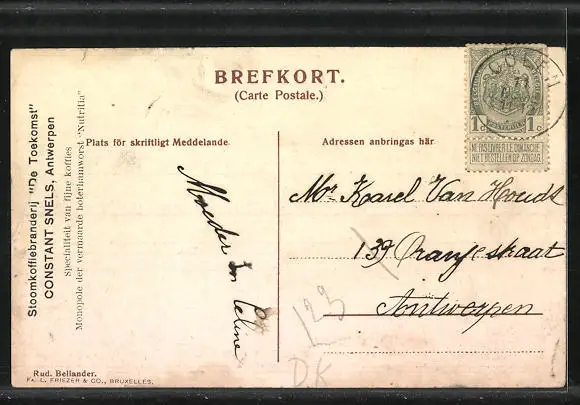 BREFKORT.
(Carte Postale.)
Plats för skriftligt Meddelande
Adressen anbringas här
Stoomkoffiebranderij "De Toekomst"
CONSTANT SNELS, Antwerpen
Specialiteit van fijne koffies
Monopole der vermaarde boterhamworst "Nutritia"
Moeder en
Celine
Mr Karel Van Houdt
139 Oranjestraat
Antwerpen
123
D.K
1c 1c
NE PAS LIVRER LE DIMANCHE
NIET BESTELLEN OP ZONDAG.
Rud. Bellander.
FA. L. FRIEZER & CO., BRUXELLES.